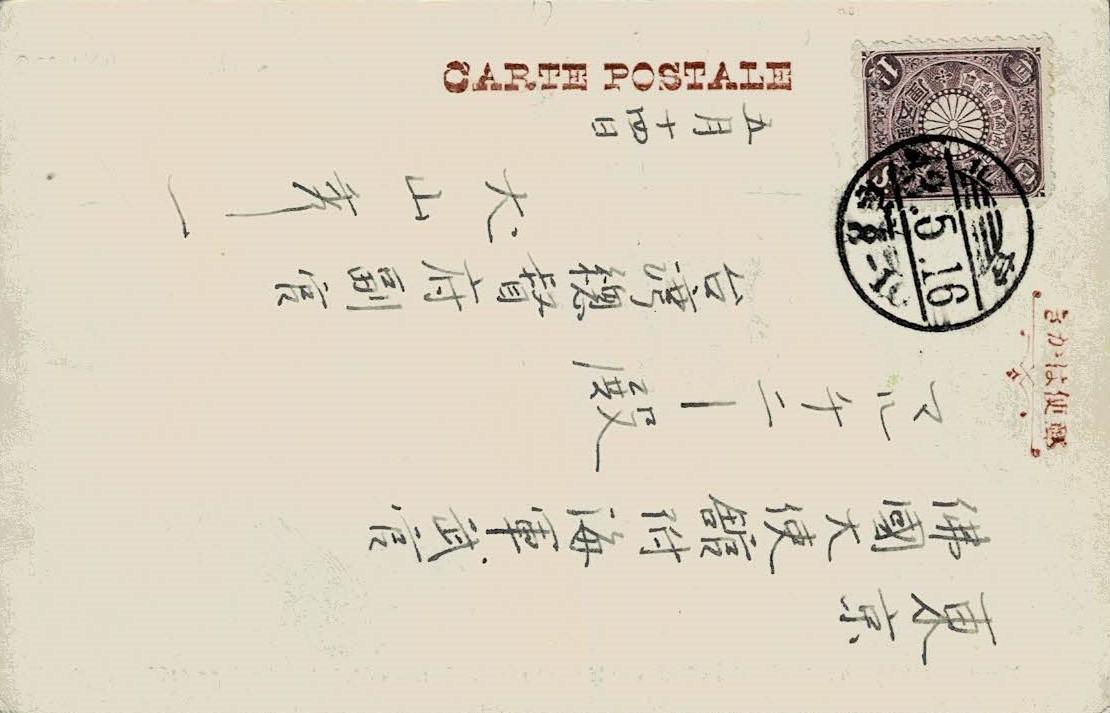 CARTE POSTALE
きかは便郵
東京
佛國大使館附海軍武官
マルチニー殿
台湾總督府副官
大山
五月十四日
42.5.16